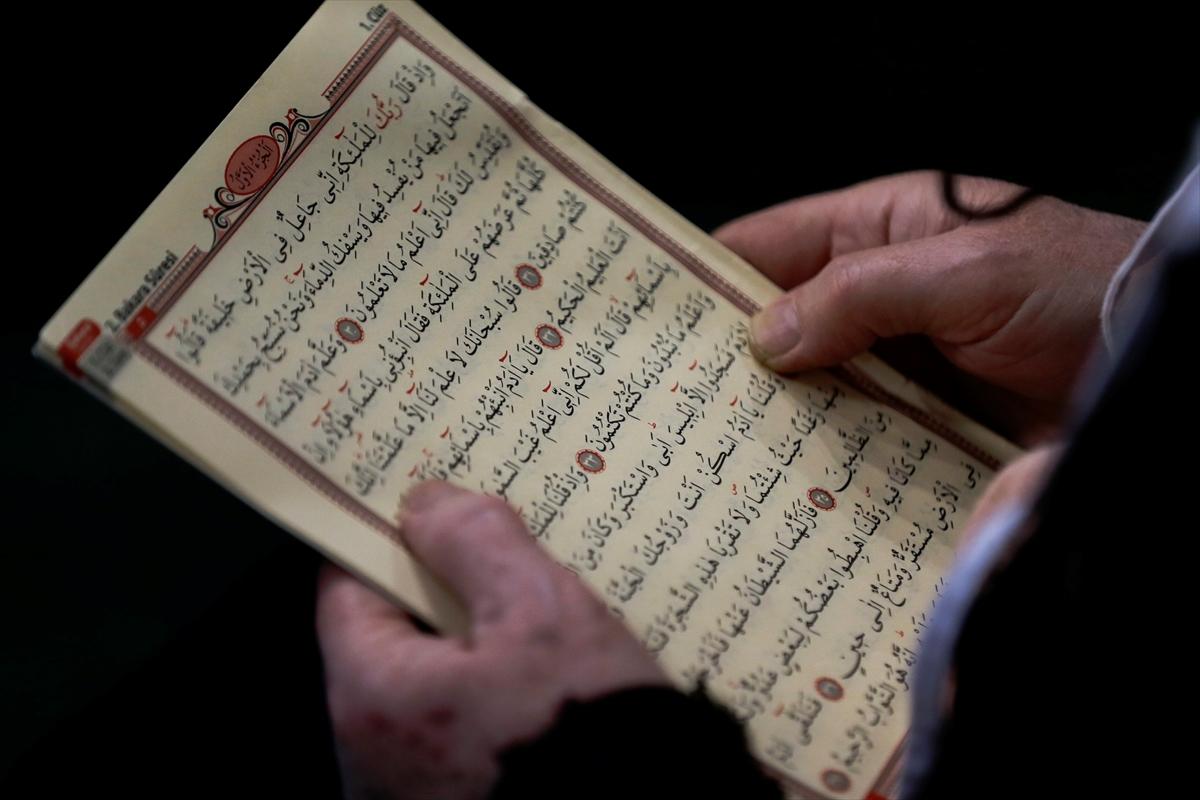 1. Cüz
اَلْجُزْءُ الْاَوَّلُ
2. Bakara Sûresi
وَاِذْ قَالَ رَبُّكَ لِلْمَلٰٓئِكَةِ اِنّٖي جَاعِلٌ فِي الْاَرْضِ خَلٖيفَةً قَالُٓوا
اَتَجْعَلُ فٖيهَا مَنْ يُفْسِدُ فٖيهَا وَيَسْفِكُ الدِّمَٓاءَ وَنَحْنُ نُسَبِّحُ بِحَمْدِكَ
وَنُقَدِّسُ لَكَ قَالَ اِنّٖٓي اَعْلَمُ مَا لَا تَعْلَمُونَ ٣٠ وَعَلَّمَ اٰدَمَ الْاَسْمَٓاءَ
كُلَّهَا ثُمَّ عَرَضَهُمْ عَلَى الْمَلٰٓئِكَةِ فَقَالَ اَنْبِؤُنٖي بِاَسْمَٓاءِ هٰٓؤُلَٓاءِ اِنْ
كُنْتُمْ صَادِقٖينَ ٣١ قَالُوا سُبْحَانَكَ لَا عِلْمَ لَنَٓا اِلَّا مَا عَلَّمْتَنَا اِنَّكَ
اَنْتَ الْعَلٖيمُ الْحَكٖيمُ ٣٢ قَالَ يَٓا اٰدَمُ اَنْبِئْهُمْ بِاَسْمَٓائِهِمْ
بِاَسْمَٓائِهِمْ قَالَ اَلَمْ اَقُلْ لَكُمْ اِنّٖٓي اَعْلَمُ غَيْبَ
وَاَعْلَمُ مَا تُبْدُونَ وَمَا كُنْتُمْ تَكْتُمُونَ ٣٣ وَاِذْ قُلْنَا
فَسَجَدُٓوا اِلَّٓا اِبْلٖيسَ اَبٰى وَاسْتَكْبَرَ وَكَانَ مِنَ
وَقُلْنَا يَٓا اٰدَمُ اسْكُنْ اَنْتَ وَزَوْجُكَ الْجَنَّةَ
مِنْهَا رَغَدًا حَيْثُ شِئْتُمَا وَلَا تَقْرَبَا هٰذِهِ الشَّجَرَةَ
مِنَ الظَّالِمٖينَ ٣٥ فَاَزَلَّهُمَا الشَّيْطَانُ عَنْهَا
مِمَّا كَانَا فٖيهِ وَقُلْنَا اهْبِطُوا بَعْضُكُمْ لِبَعْضٍ عَدُوٌّ
فِي الْاَرْضِ مُسْتَقَرٌّ وَمَتَاعٌ اِلٰى حٖينٍ ٣٦ فَتَلَقّٰٓى اٰدَمُ
اِنَّهُ هُوَ التَّوَّابُ الرَّحٖيمُ ٣٧